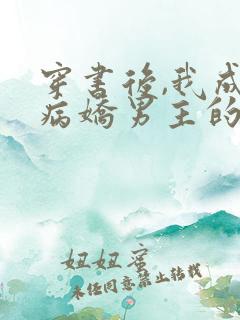 穿書後,我成
病嬌男主的
妞妞蜜
未經同意禁止轉載